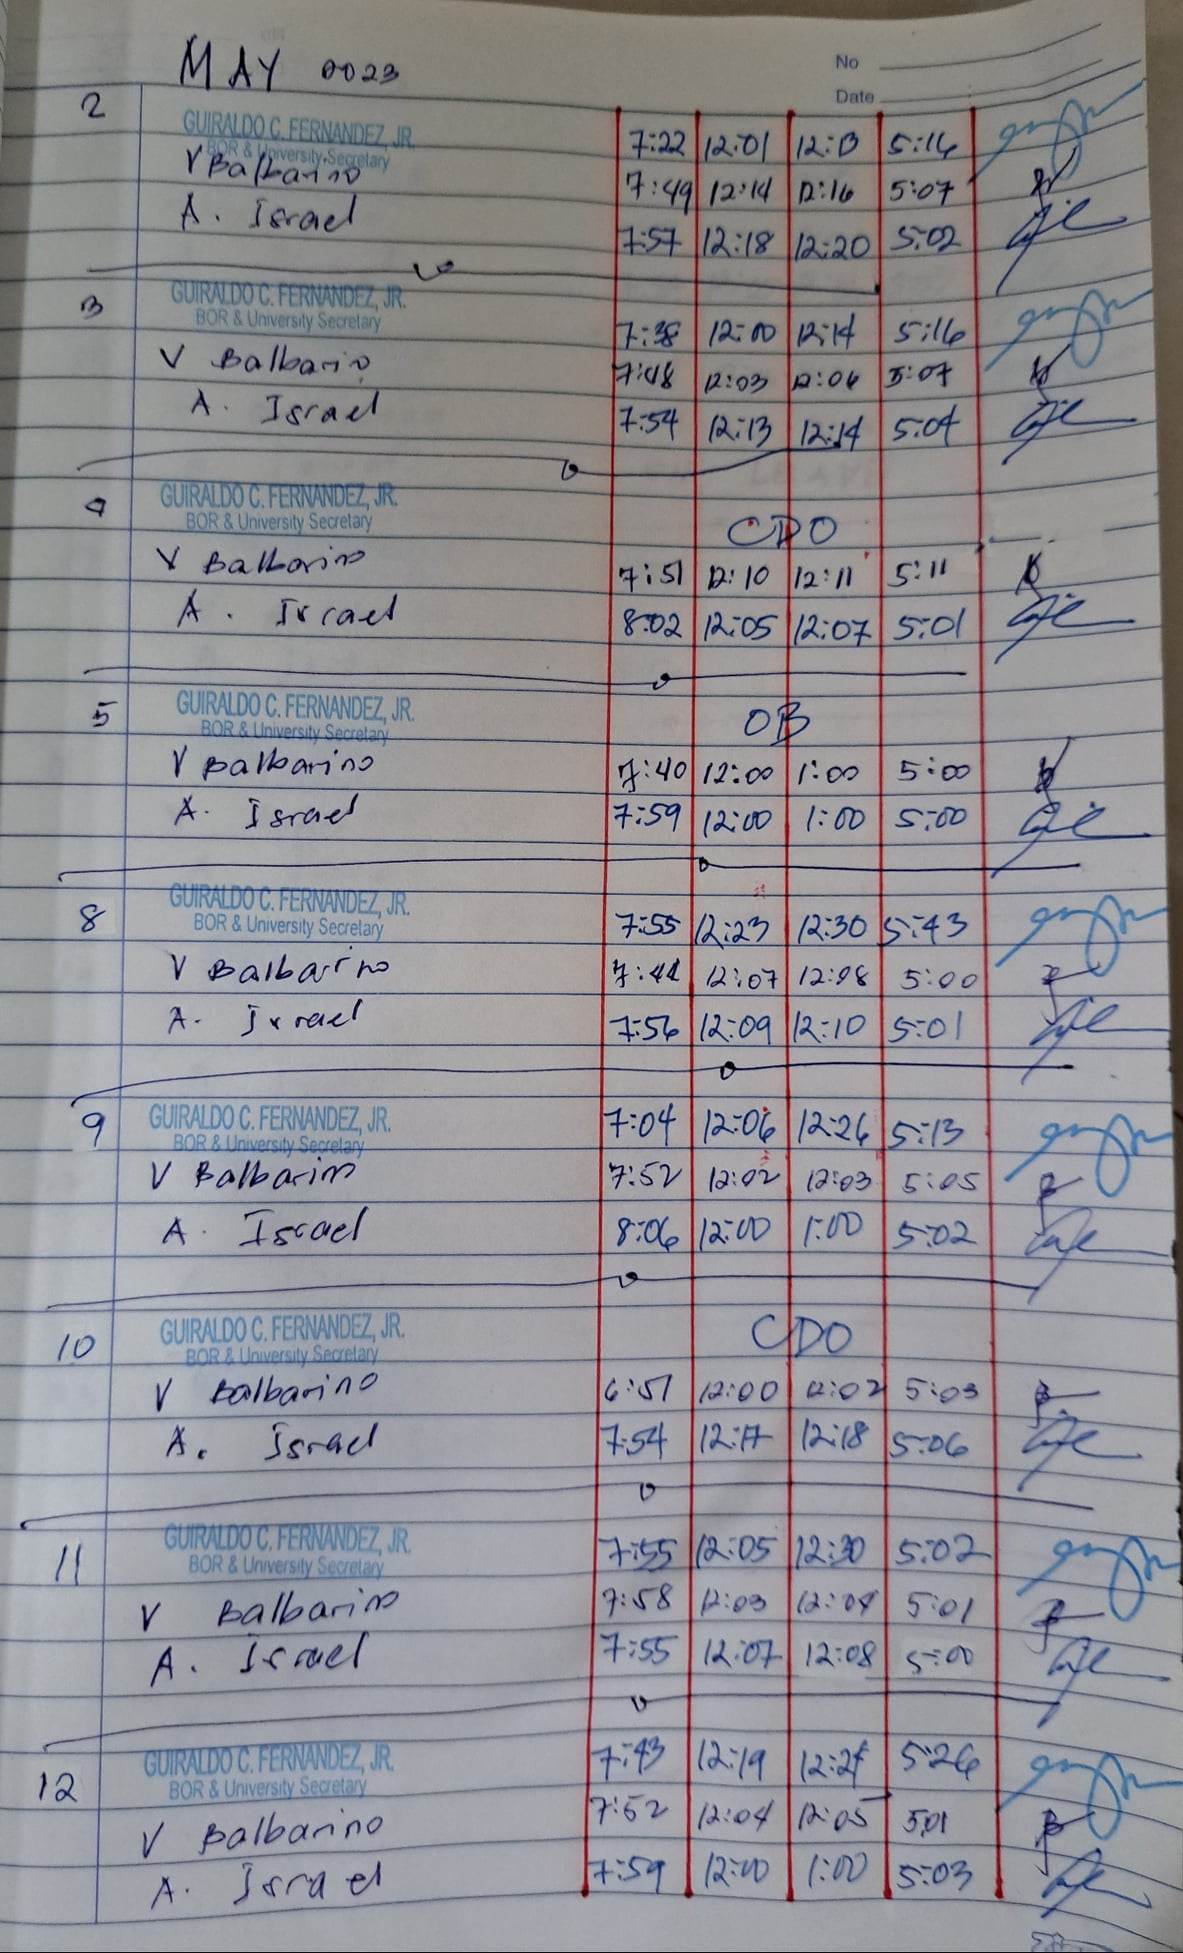 MAY 2023
No
Date
2 GUIRALDO C. FERNANDEZ, JR. 7:22 12:01 12:13 5:16
BOR & University Secretary
V Balbarino 7:49 12:14 12:16 5:07
A. Israel 7:57 12:18 12:20 5:02
3 GUIRALDO C. FERNANDEZ, JR. 7:38 12:00 12:14 5:16
BOR & University Secretary
V Balbarino 7:48 12:03 12:06 5:07
A. Israel 7:54 12:13 12:14 5:04
4 GUIRALDO C. FERNANDEZ, JR. CDO
BOR & University Secretary
V Balbarino 7:51 12:10 12:11 5:11
A. Israel 8:02 12:05 12:07 5:01
5 GUIRALDO C. FERNANDEZ, JR. OB
BOR & University Secretary
V Balbarino 7:40 12:00 1:00 5:00
A. Israel 7:59 12:00 1:00 5:00
8 GUIRALDO C. FERNANDEZ, JR. 7:55 12:23 12:30 5:43
BOR & University Secretary
V Balbarino 12:07 12:08 5:00
A. Israel 7:56 12:09 12:10 5:01
9 GUIRALDO C. FERNANDEZ, JR. 7:04 12:06 12:26 5:13
BOR & University Secretary
V Balbarino 7:52 12:02 12:03 5:05
A. Israel 8:06 12:00 1:00 5:02
10 GUIRALDO C. FERNANDEZ, JR. CDO
BOR & University Secretary
V Balbarino 6:51 12:00 12:02 5:03
A. Israel 7:54 12:17 12:18 5:06
11 GUIRALDO C. FERNANDEZ, JR. 7:55 12:05 12:30 5:02
BOR & University Secretary
V Balbarino 7:58 12:03 12:04 5:01
A. Israel 7:55 12:07 12:08 5:00
12 GUIRALDO C. FERNANDEZ, JR. 7:43 12:19 5:26
BOR & University Secretary
V Balbarino 7:52 12:04 12:05 5:01
A. Israel 7:59 12:00 1:00 5:03